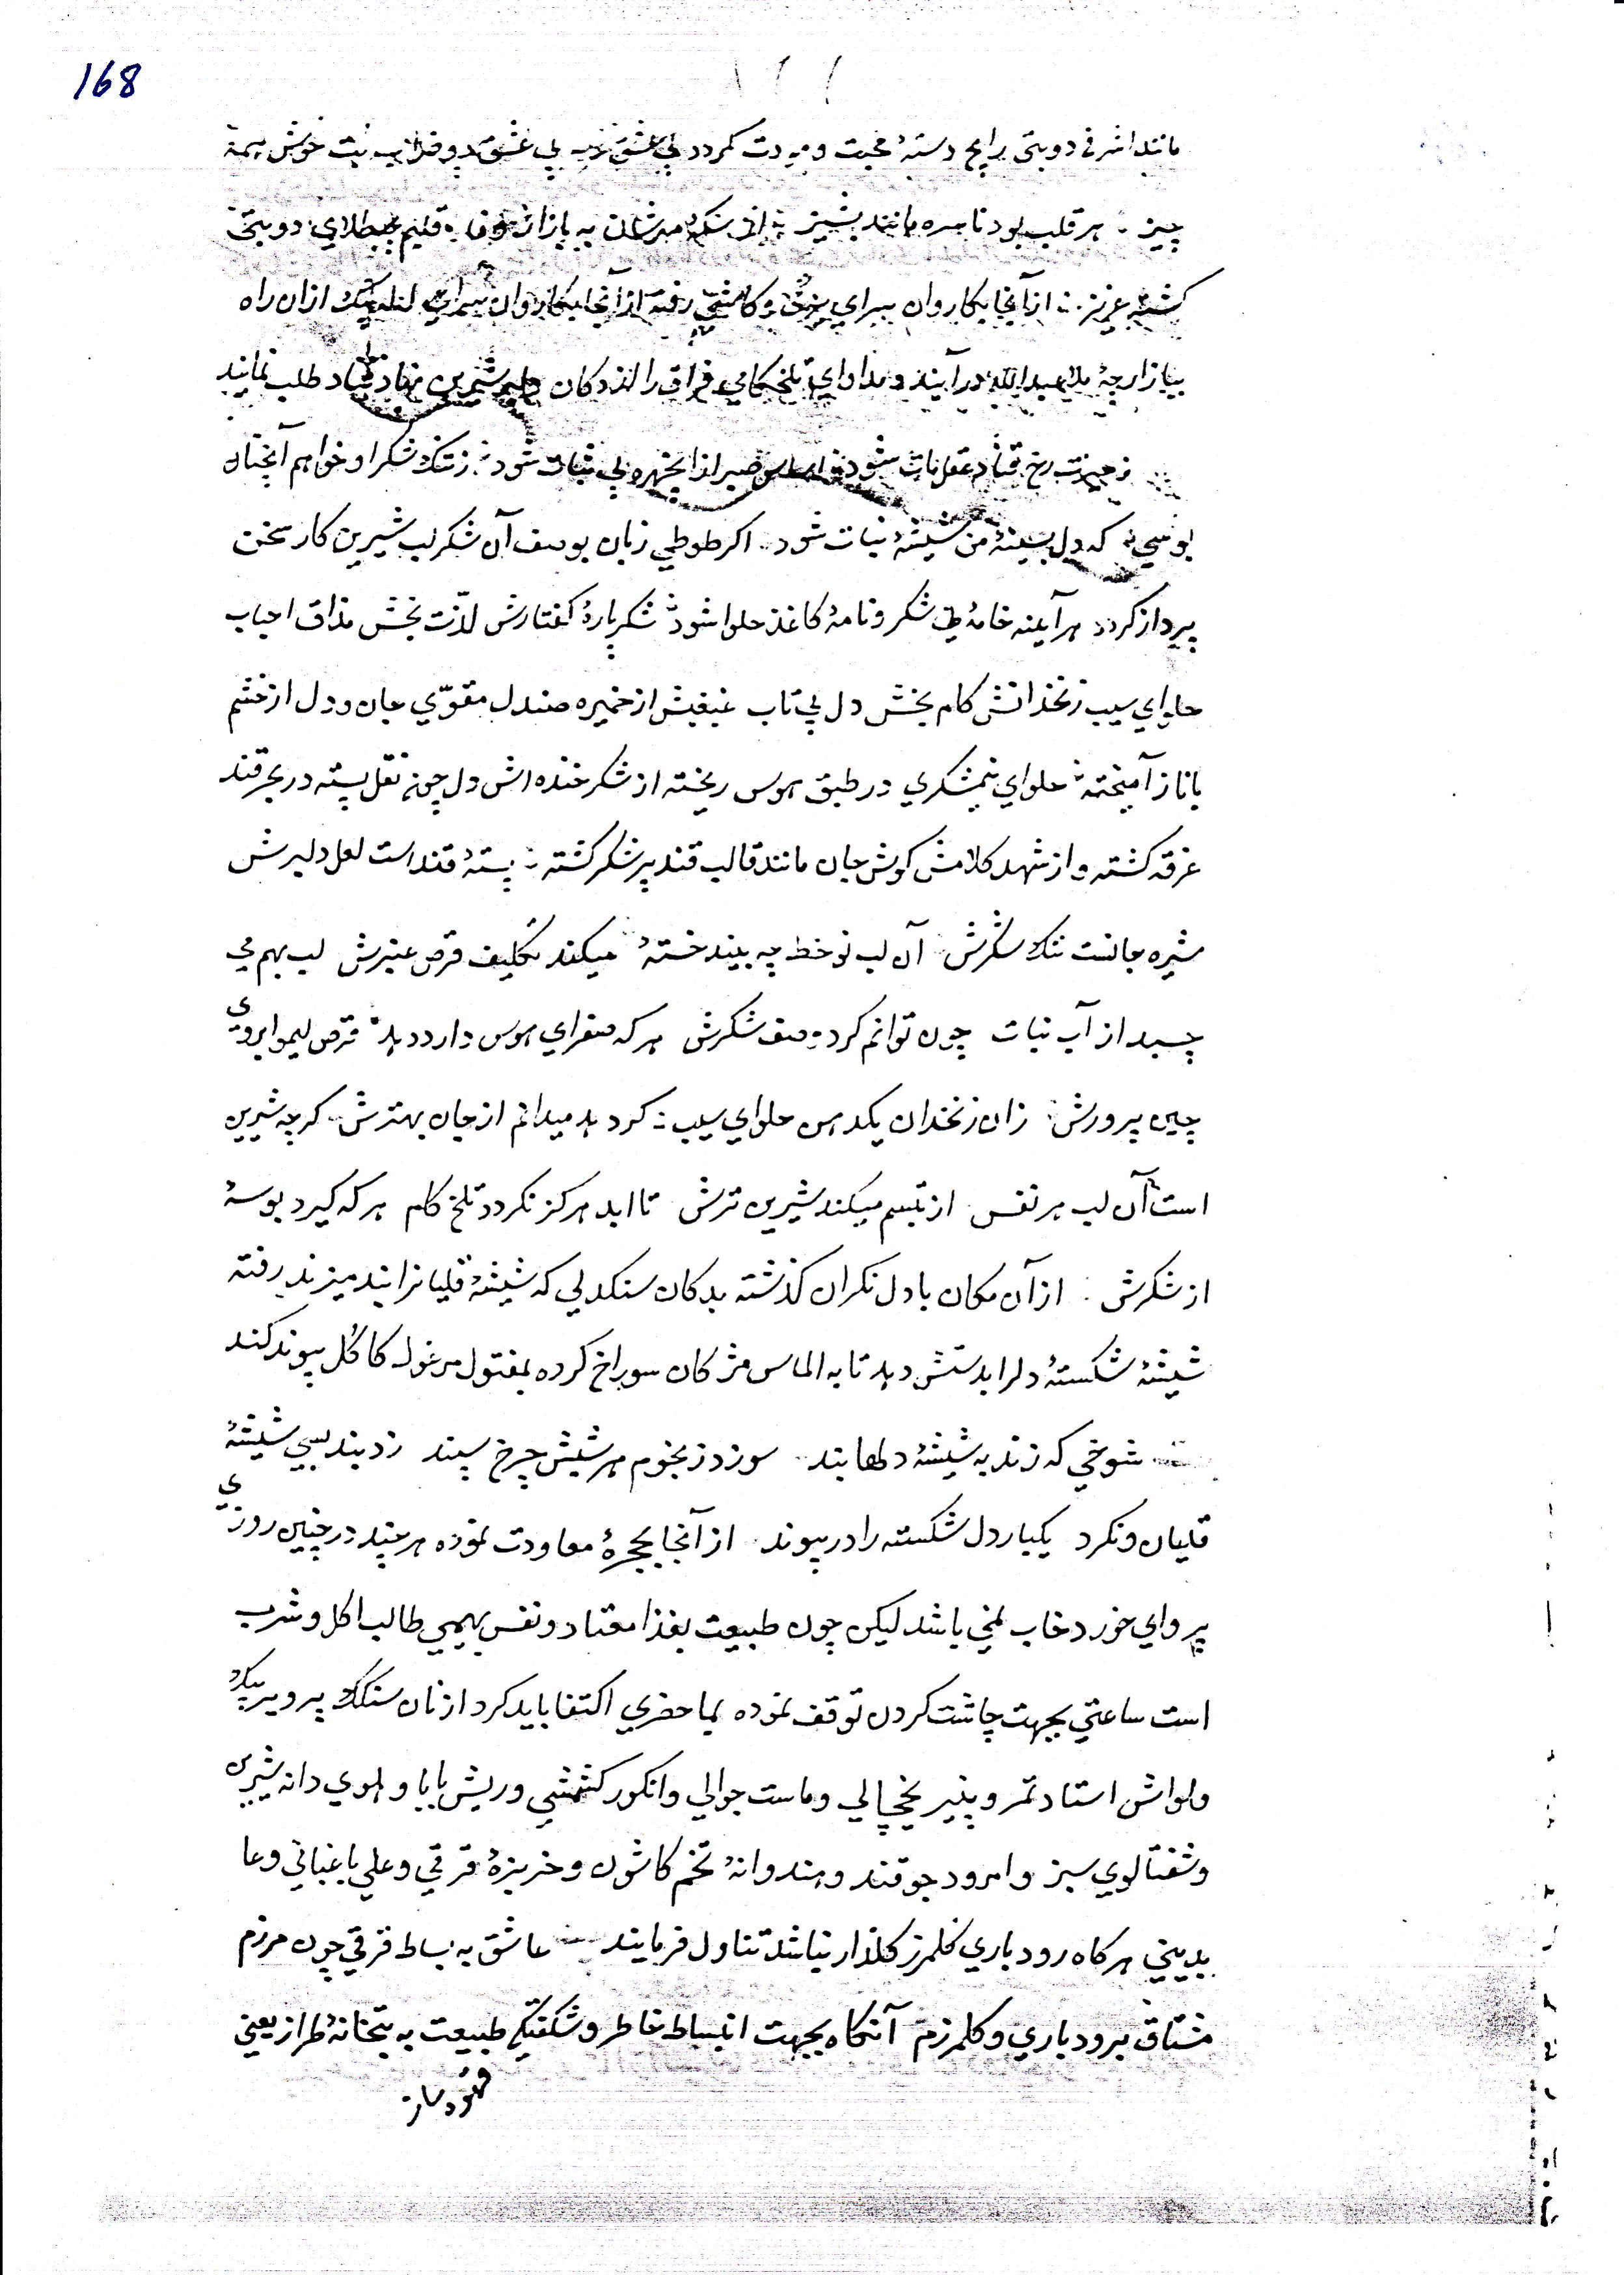 168
مانند اشرفی دوبتی رایج دستهٔ محبت و مودت کردد بی عشق
چیز هر قلب بود ناسره مانند پشیز از سکهٔ مهرشان به بازار وفا قلبم طلای دوبتی
کشته عزیز از آنجا بکاروان سرای رفته از آنجا بکاروان سرای از ان راه
ببازارچهٔ در آیند و مداوای تلخکامی فراق را از دکان دلبر شیرین نهاد قناد طلب نمایند
رخ قناد عقل مات شود اساس صبر از انچهره بی ثبات شود ز تنک شکر او خواهم آنچنان
بوسی که دل بسینهٔ من شیشهٔ نبات شود اکر طوطی زبان بوصف آن شکر لب شیرین کار سخن
پرداز کردد هر آینه خامهٔ نی شکر و نامهٔ کاغذ حلوا شود شکر پارهٔ کفتارش لذّت بخش مذاق احباب
حلوای سیب زنخدانش کام بخش دل بی تاب غبغبش از خمیره صندل مقوّی جان و دل از خشم
با ناز آمیخته حلوای نیمشکری در طبق هوس ریخته از شکر خنده اش دل چون نقل پسته در بحر قند
غرقه کشته و از شهد کلامش کوش جان مانند قالب قند پر شکر کشته پستهٔ قند است لعل دلبرش
شیره جانست تنک شکرش آن لب نو خط چه بیند خستهٔ میکند تکلیف قرص عنبرش لب بهم می
چسبد از آب نبات چون توانم کرد وصف شکرش هر که صفرای هوس دارد دهد قرص لیمو ابروی
چین پرورش زان زنخدان یکدهن حلوای سیب کر دهد میدانم از جان بهترش کر چه شیرین
است آن لب هر نفس از تبسم میکند شیرین ترش تا ابد هرکز نکردد تلخ کام هر که کیرد بوسهٔ
از شکرش از آن مکان با دل نکران کذشته بدکان سنکدلی که شیشهٔ قلیانرا بند میزند رفته
شیشهٔ شکستهٔ دلرا بدستش دهد تا به الماس مژکان سوراخ کرده بمفتول مرغول کاکُل پیوند کند
شوخی که زند به شیشهٔ دلها بند سوزد ز نجوم هر شبش چرخ سپند زد بند بسی شیشهٔ
قلیان و نکرد یکبار دل شکسته را در پیوند از آنجا بحجرهٔ معاودت نموده هر چند در چنین روزی
پروای خورد و خاب نمی باشد لیکن چون طبیعت بغذا معتاد و نفس بهیمی طالب اکل و شرب
است ساعتی بجهت چاشت کردن توقف نموده بما حضری اکتفا باید کرد از نان سنکک
و لواش استاد تمر و پنیر یخچالی و ماست جوالی و انکور کشمشی و ریش بابا و هلوی دانه شیرین
و شفتالوی سبز و امرود جوقند و هندوانهٔ تخم کاشون و خربزهٔ قرقی و علی باغبانی و عا
بدینی هر کاه رودباری کلمرز کلذار نباشد تناول فرمایند عاشق به بساط قرقی چون مرزم
مشتاق برودباری و کلمرزم آنکاه بجهت انبساط خاطر و شکفتکی طبیعت به بتخانهٔ طراز یعنی